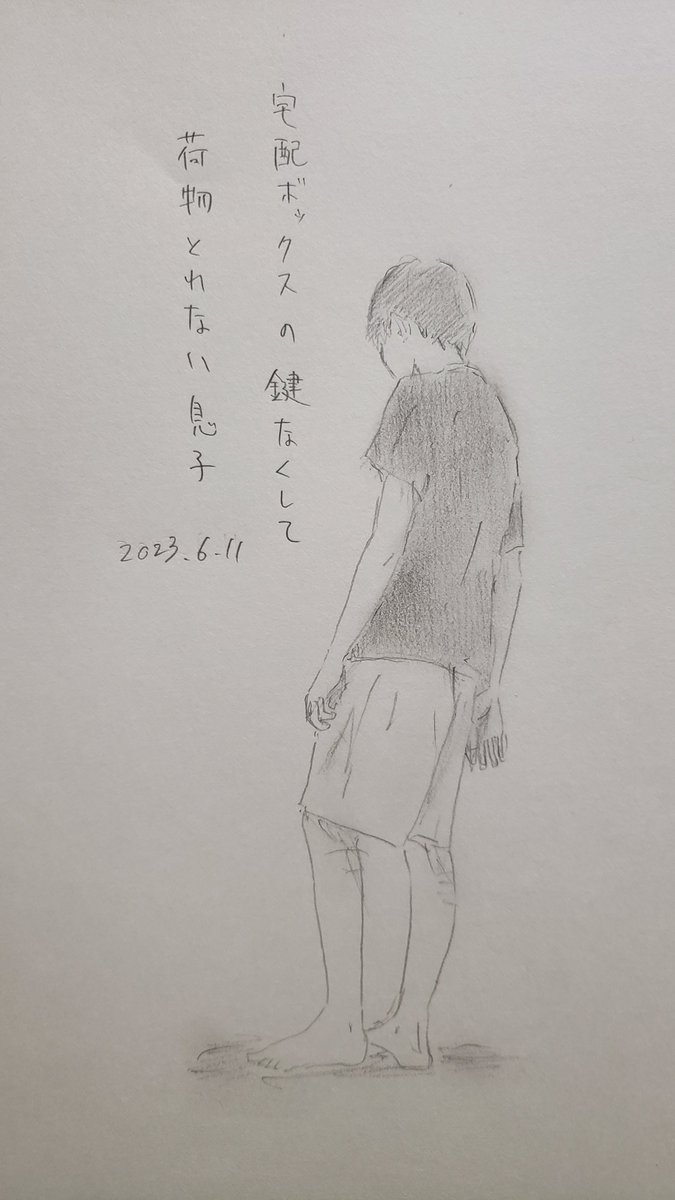 宅配ボックスの鍵なくして
荷物とれない息子
2023.6.11